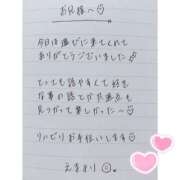 お兄様へ♡
今日は遊びに来てくれて
ありがとうございました
とっても話やすくて好き
な事の話とか共通点も
見つかって楽しかった〜
リハビリお手伝いします♡
えまより